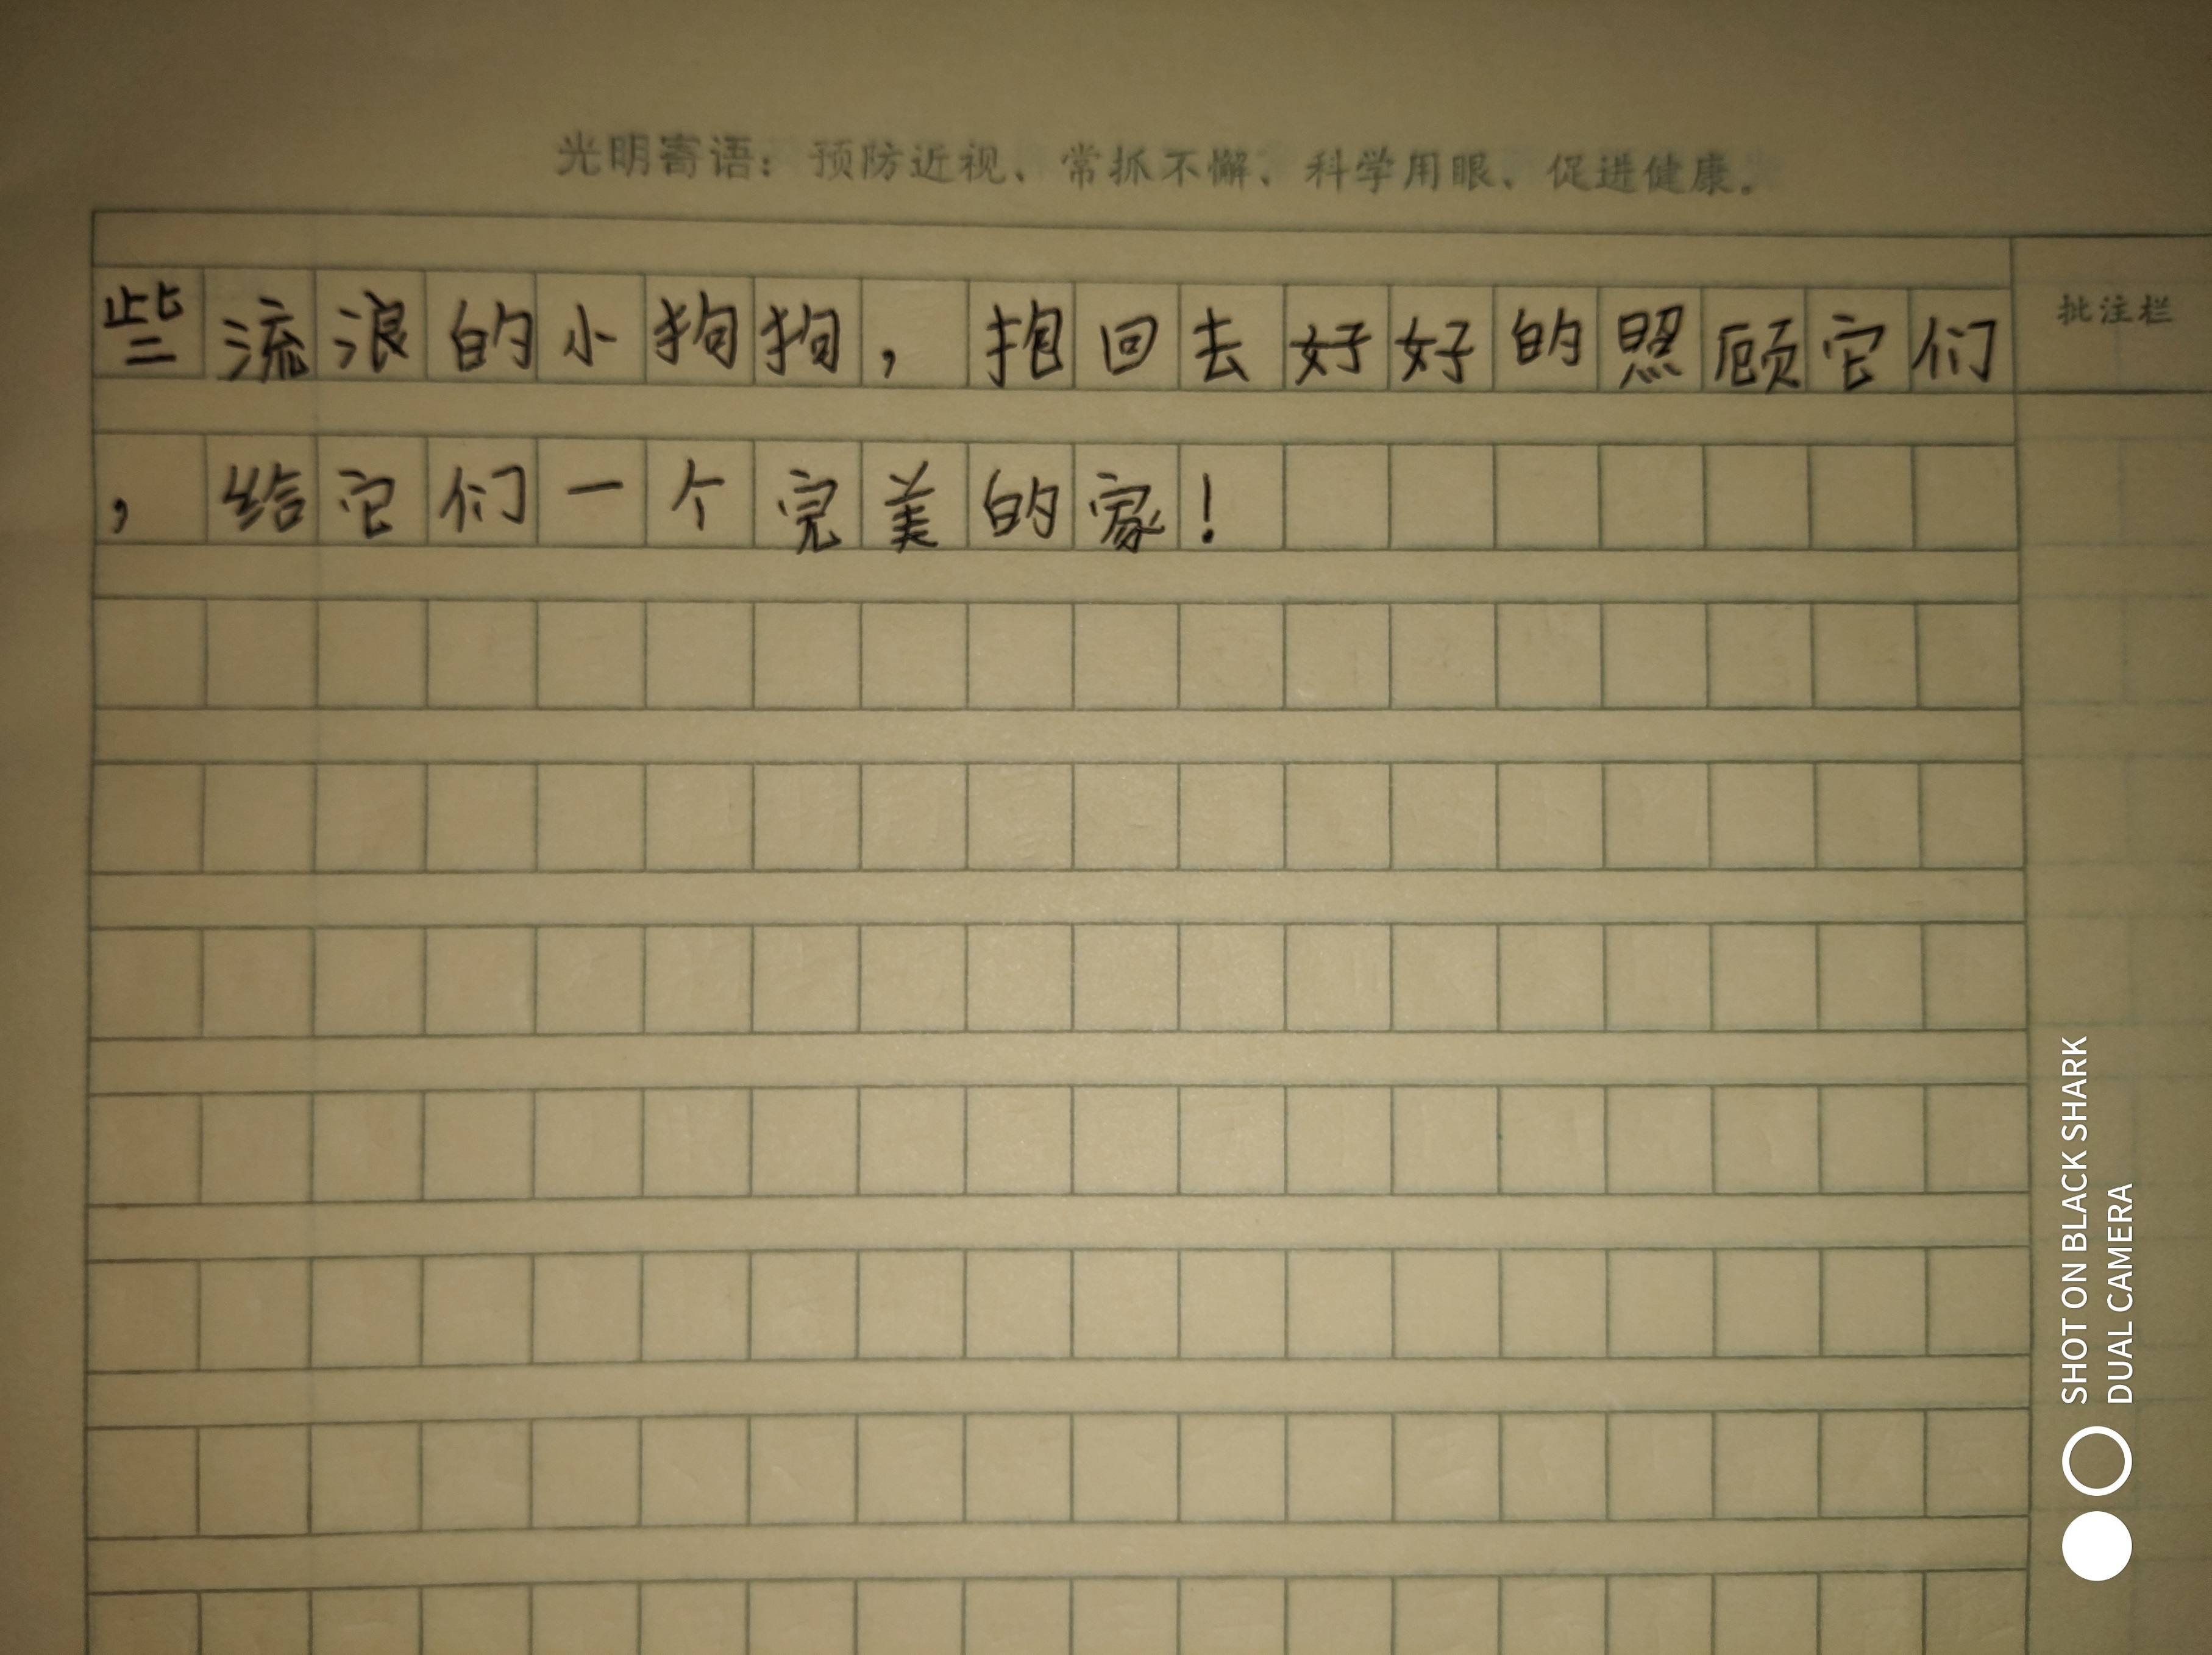 光明寄语：预防近视、常抓不懈、科学用眼、促进健康。
批注栏
些流浪的小狗狗，抱回去好好的照顾它们
，给它们一个完美的家！
SHOT ON BLACK SHARK
DUAL CAMERA